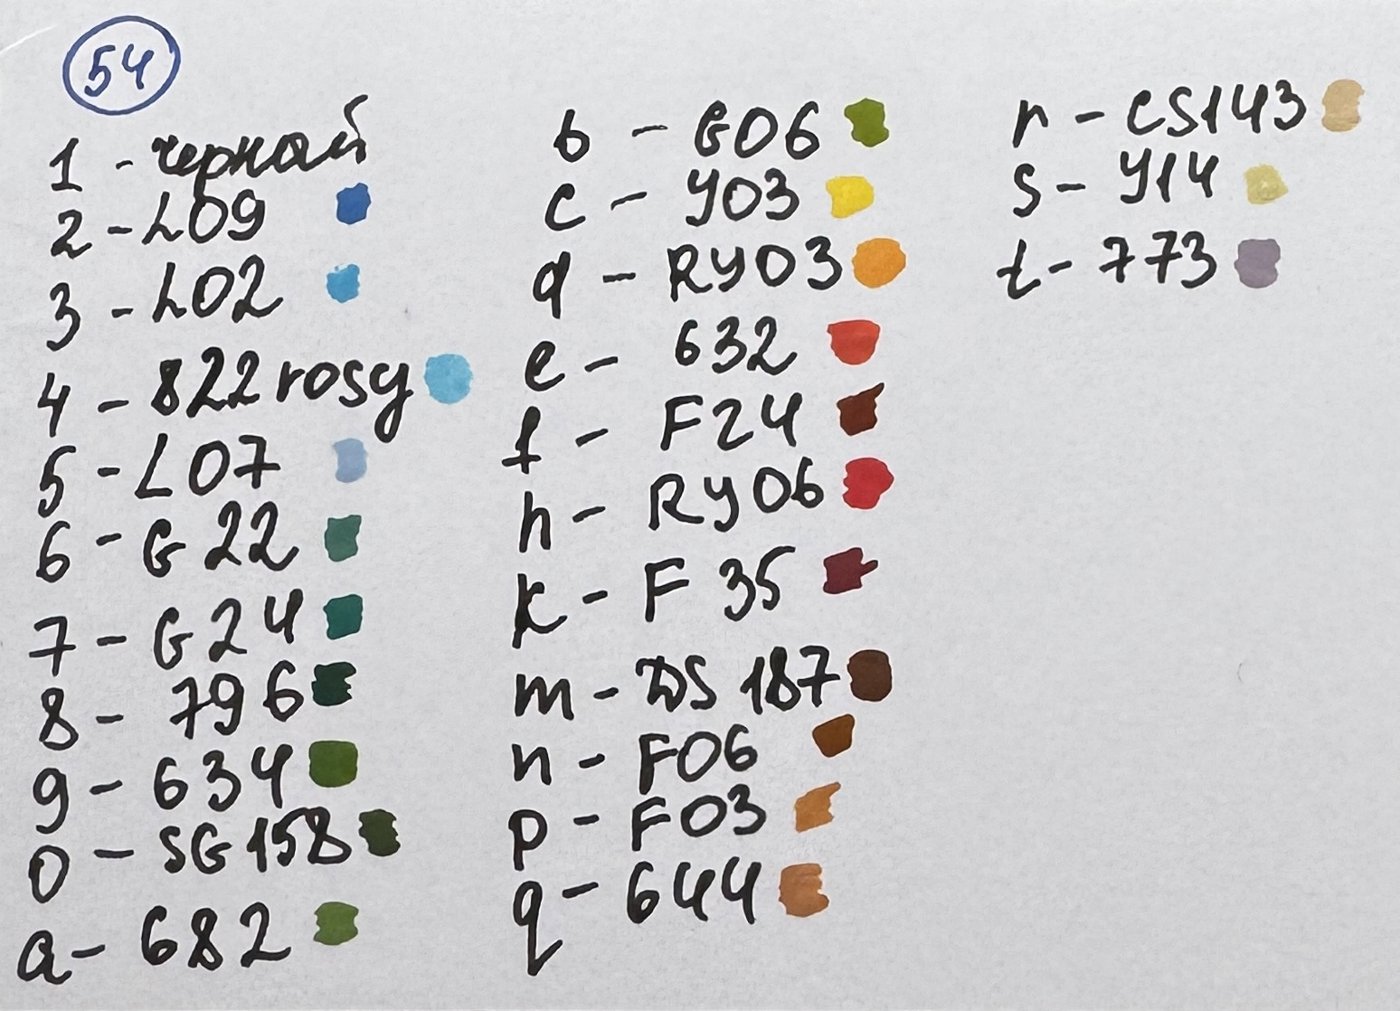 54
1 - черный
2 - L09
3 - L02
4 - 822 rosy
5 - L07
6 - G22
7 - G24
8 - 796
9 - 634
0 - SG158
a - 682
b - G06
c - Y03
d - RY03
e - 632
f - F24
h - RY06
k - F35
m - DS 187
n - F06
p - F03
q - 644
r - CS143
s - Y14
t - 773